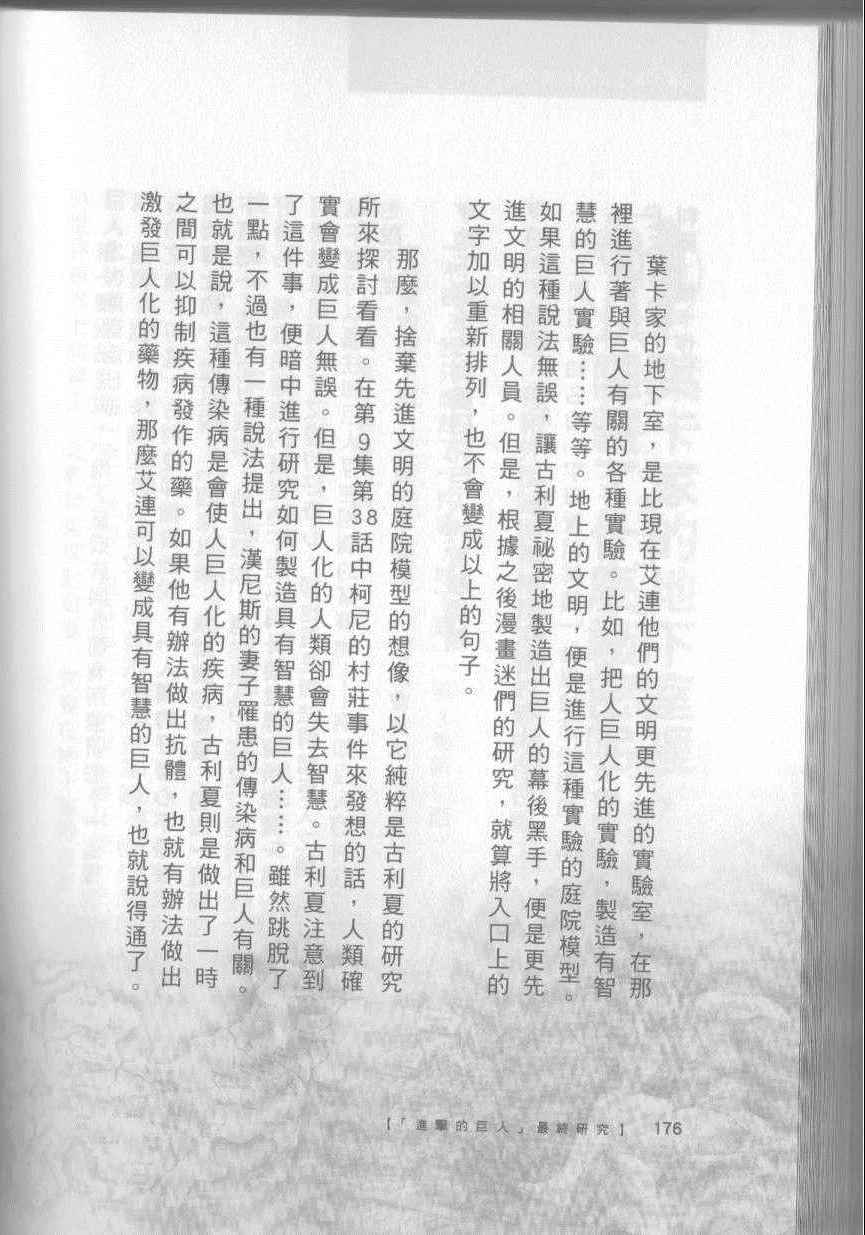 葉卡家的地下室，是比現在艾連他們的文明更先進的實驗室，在那
裡進行著與巨人有關的各種實驗。比如，把人巨人化的實驗，製造有智
慧的巨人實驗……等等。地上的文明，便是進行這種實驗的庭院模型。
如果這種說法無誤，讓古利夏祕密地製造出巨人的幕後黑手，便是更先
進文明的相關人員。但是，根據之後漫畫迷們的研究，就算將入口上的
文字加以重新排列，也不會變成以上的句子。
那麼，捨棄先進文明的庭院模型的想像，以它純粹是古利夏的研究
所來探討看看。在第9集第38話中柯尼的村莊事件來發想的話，人類確
實會變成巨人無誤。但是，巨人化的人類卻會失去智慧。古利夏注意到
了這件事，便暗中進行研究如何製造具有智慧的巨人……。雖然跳脫了
一點，不過也有一種說法提出，漢尼斯的妻子罹患的傳染病和巨人有關。
也就是說，這種傳染病是會使人巨人化的疾病，古利夏則是做出了一時
之間可以抑制疾病發作的藥。如果他有辦法做出抗體，也就有辦法做出
激發巨人化的藥物，那麼艾連可以變成具有智慧的巨人，也就說得通了。
【「進擊的巨人」最終研究】 176